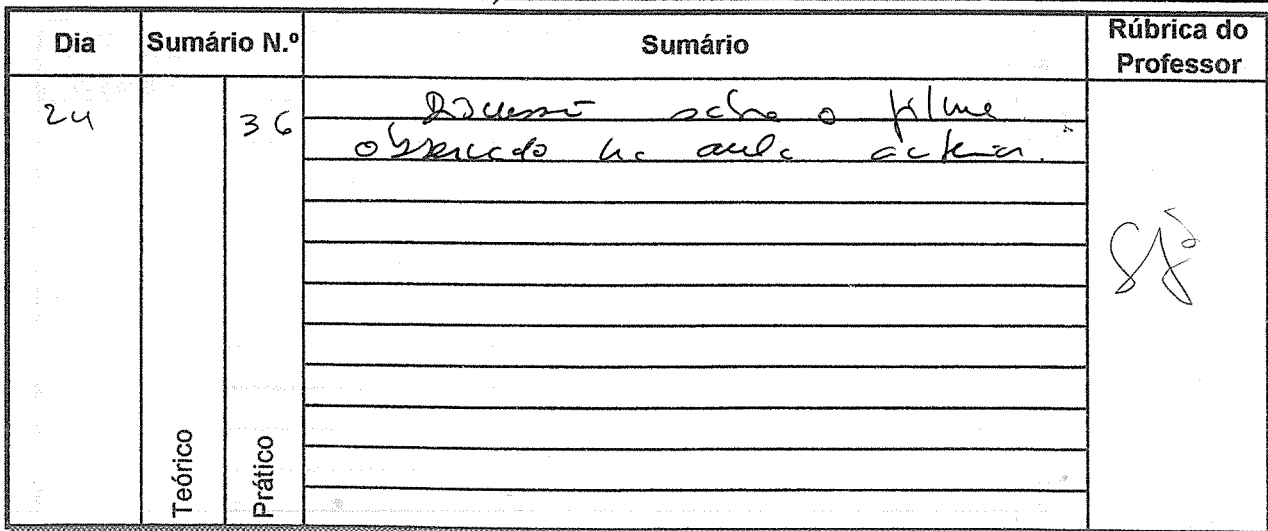 Dia Sumário N.º Sumário Rúbrica do Professor
24 36 Discussão sobre o filme
observado na aula anterior.
Teórico Prático